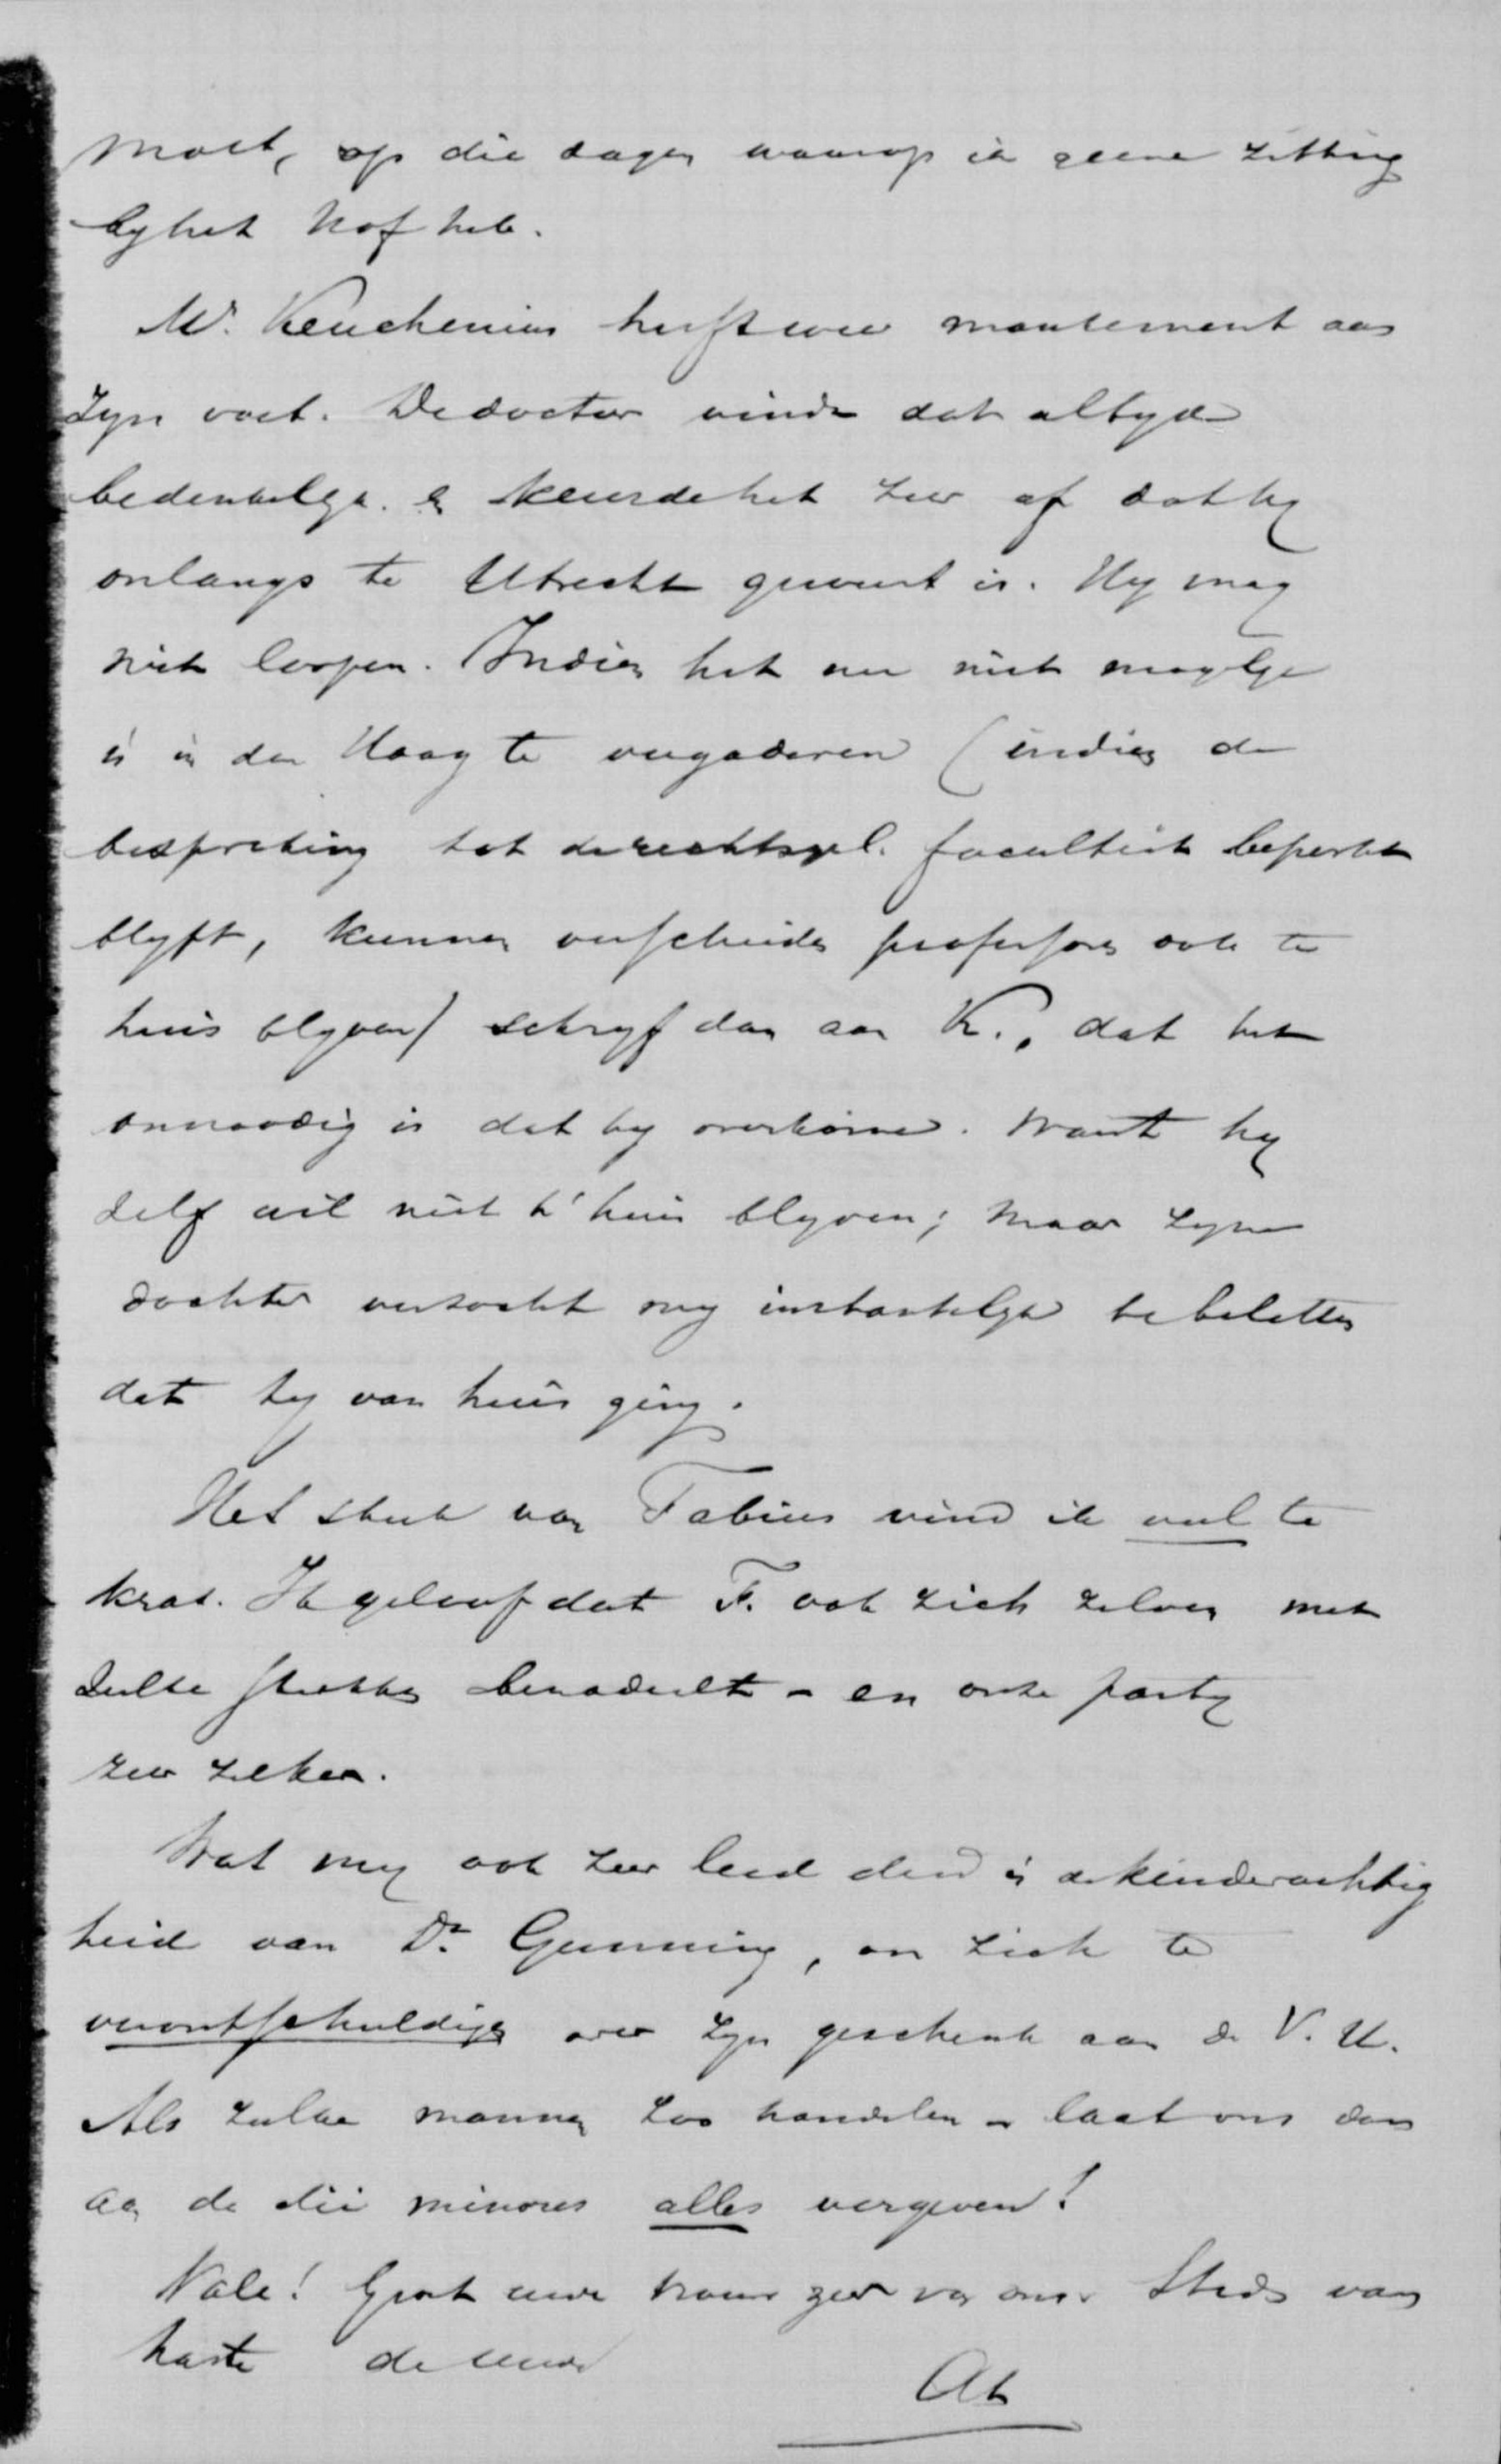 moet, op die dagen waarop ik geene zitting
by het Hof heb.
Mr. Keuchenius heeft weer mankement aan
zyn voet. De doctor vindt dat altyd
bedenkelyk. & keurde het zeer af dat hy
onlangs te Utrecht geweest is. Hy mag
niet loopen. Indien het nu niet mogelyk
is in den Haag te vergaderen (indien de
bespreking tot de rechtsgel. faculteit beperkt
blyft, kunnen verscheiden professoren ook te
huis blyven) schryf dan aan K., dat het
onnoodig is dat hy overkome. Want hy
zelf wil niet t'huis blyven; maar zyne
dochter verzocht my instantelyk te beletten
dat hy van huis ging.
Het stuk van Fabius vind ik veel te
kras. Ik geloof dat F. ook zich zelven met
zulke stukken benadeelt - en onze party
zeer zeker.
Wat my ook zeer leed deed is de kinderachtig
heid van Dr. Gunning, om zich te
verontschuldigen over zyn geschenk aan de V. U.
Als zulke mannen zoo handelen - laat ons dan
aan de dii minores alles vergeven!
Vale! Groet uwe vrouw zeer van ons. Steeds van
harte de uwe